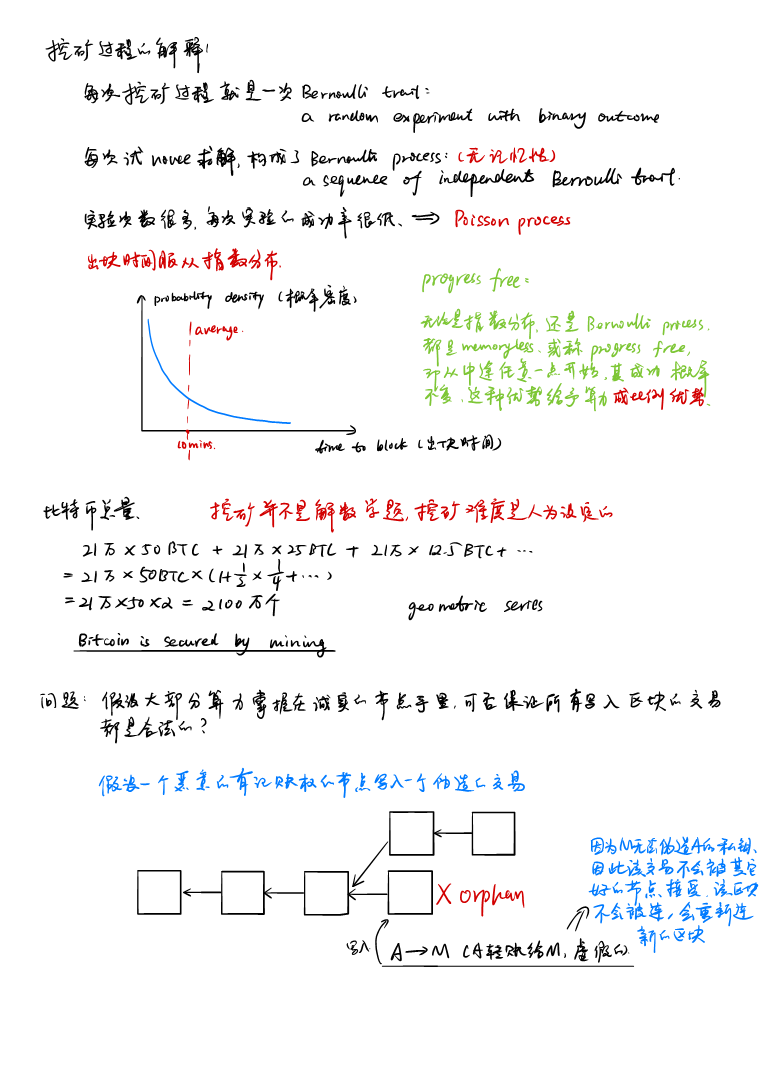 挖矿过程的解释!
每次挖矿过程就是一次 Bernoulli trail:
a random experiment with binary outcome
每次试 nonce 求解, 构成了 Bernoulli process: (无记忆性)
a sequence of independent Bernoulli trail.
实验次数很多, 每次实验的成功率很低、 ⇒ Poisson process
出块时间服从指数分布.
progress free:
probability density (概率密度)
average.
无论是指数分布, 还是 Bernoulli process.
都是 memoryless. 或称 progress free,
即从中途任意一点开始, 其成功概率
不变, 这种优势给予算力成比例优势.
10 mins.
time to block (出块时间)
比特币总量、 挖矿并不是解数学题, 挖矿难度是人为设定的
21万 × 50 BTC + 21万 × 25 BTC + 21万 × 12.5 BTC + ...
= 21万 × 50BTC × (1+ 1/2 × 1/4 + ...)
= 21万 × 50 × 2 = 2100 万个
geometric series
Bitcoin is secured by mining
问题: 假设大部分算力掌握在诚实的节点手里, 可否保证所有写入区块的交易
都是合法的?
假设一个恶意的有记账权的节点写入一个伪造的交易
因为M无法伪造A的私钥、
因此该交易不会被其它
好的节点接受, 该区块
不会被连, 会重新连
新的区块
X orphan
写入
A→M (A转账给M, 虚假的)